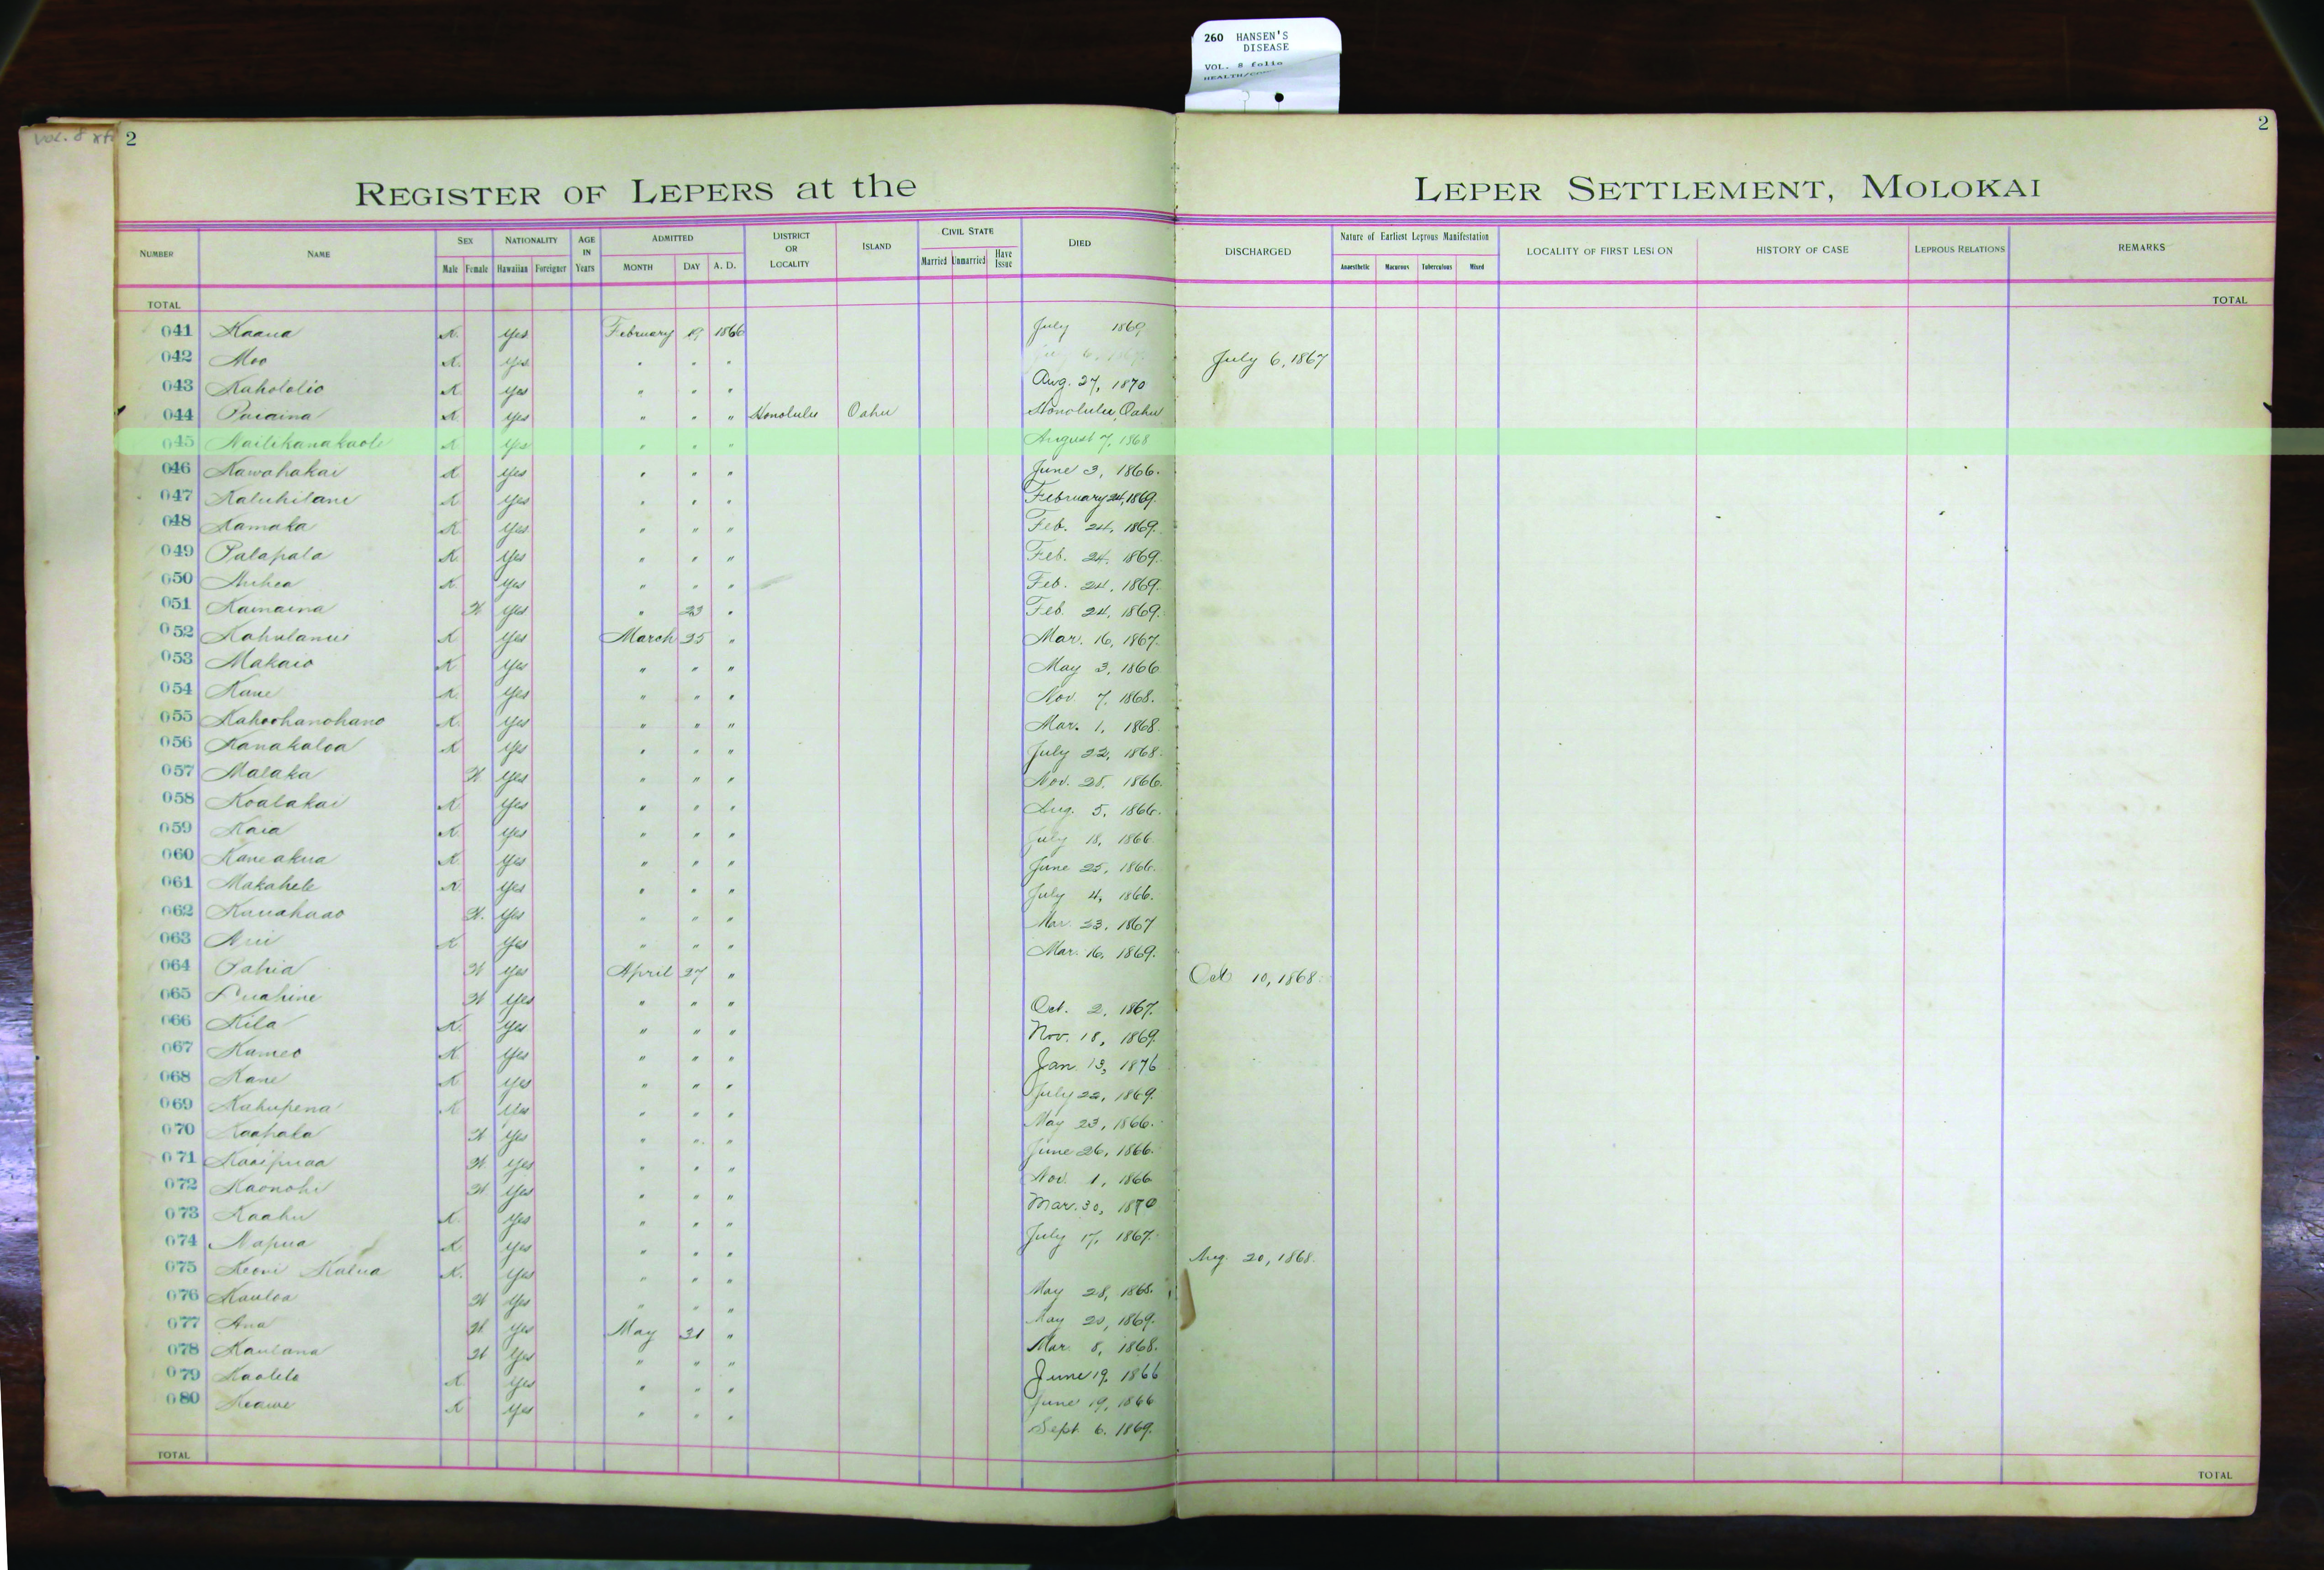 260 HANSEN'S
DISEASE
VOL. 8 folio
Vol. 8
2
2
REGISTER OF LEPERS at the LEPER SETTLEMENT, MOLOKAI
NUMBER NAME SEX NATIONALITY AGE IN Years ADMITTED DISTRICT OR LOCALITY ISLAND CIVIL STATE DIED DISCHARGED Nature of Earliest Leprous Manifestation LOCALITY OF FIRST LESION HISTORY OF CASE LEPROUS RELATIONS REMARKS
Male Female Hawaiian Foreigner MONTH DAY A. D. Married Unmarried Have Issue Anaesthetic Macurous Tuberculous Mixed
TOTAL TOTAL
041 Kaana K. Yes February 19 1866 July 1869
042 Moo K. Yes " " " July 6, 1867
043 Kahololio K. Yes " " " Aug. 27, 1870
044 Puaaina K. Yes " " " Honolulu Oahu Honolulu, Oahu
045 Nailikanakaole K Yes " " " August 7, 1868
046 Kawahakai K Yes " " " June 3, 1866.
047 Kaluhilani K Yes " " " February 24, 1869.
048 Kamaka K Yes " " " Feb. 24, 1869.
049 Palapala K. Yes " " " Feb. 24, 1869.
050 Auhea K. Yes " " " Feb. 24, 1869.
051 Kamaina W Yes " 23 " Feb. 24, 1869.
052 Kahulanui K Yes March 25 " Mar. 16, 1867.
053 Makaio K Yes " " " May 3, 1866
054 Kane K. Yes " " " Nov. 7, 1868.
055 Kahoohanohano K. Yes " " " Mar. 1, 1868.
056 Kanakaloa K Yes " " " July 22, 1868.
057 Malaka W Yes " " " Nov. 28, 1866.
058 Koalakai K Yes " " " Aug. 5, 1866.
059 Kaia K. Yes " " " July 18, 1866.
060 Kaneakua K Yes " " " June 25, 1866.
061 Makahele K Yes " " " July 4, 1866.
062 Kauahaao W. Yes " " " Mar. 23, 1867
063 Aui K Yes " " " Mar. 16, 1869.
064 Pahia W Yes April 27 " Oct 10, 1868.
065 Puahine W Yes " " " Oct. 2, 1867.
066 Kila K. Yes " " " Nov. 18, 1869.
067 Kameo K Yes " " " Jan. 13, 1876
068 Kane K Yes " " " July 22, 1869.
069 Kahupena K Yes " " " May 23, 1866.
070 Kaapala W Yes " " " June 26, 1866.
071 Kaaipuaa W. Yes " " " Nov. 1, 1866
072 Kaonohi W Yes " " " Mar. 30, 1870
073 Kaahu K. Yes " " " July 17, 1867.
074 Napua K. Yes " " " Aug. 20, 1868.
075 Keoni Kalua K. Yes " " " May 28, 1868.
076 Kauloa W Yes " " " May 20, 1869.
077 Ana W. Yes May 31 " Mar. 8, 1868.
078 Kaulana W Yes " " " June 19, 1866
079 Kaolelo K Yes " " " June 19, 1866
080 Keawe K Yes " " " Sept. 6, 1869.
TOTAL TOTAL